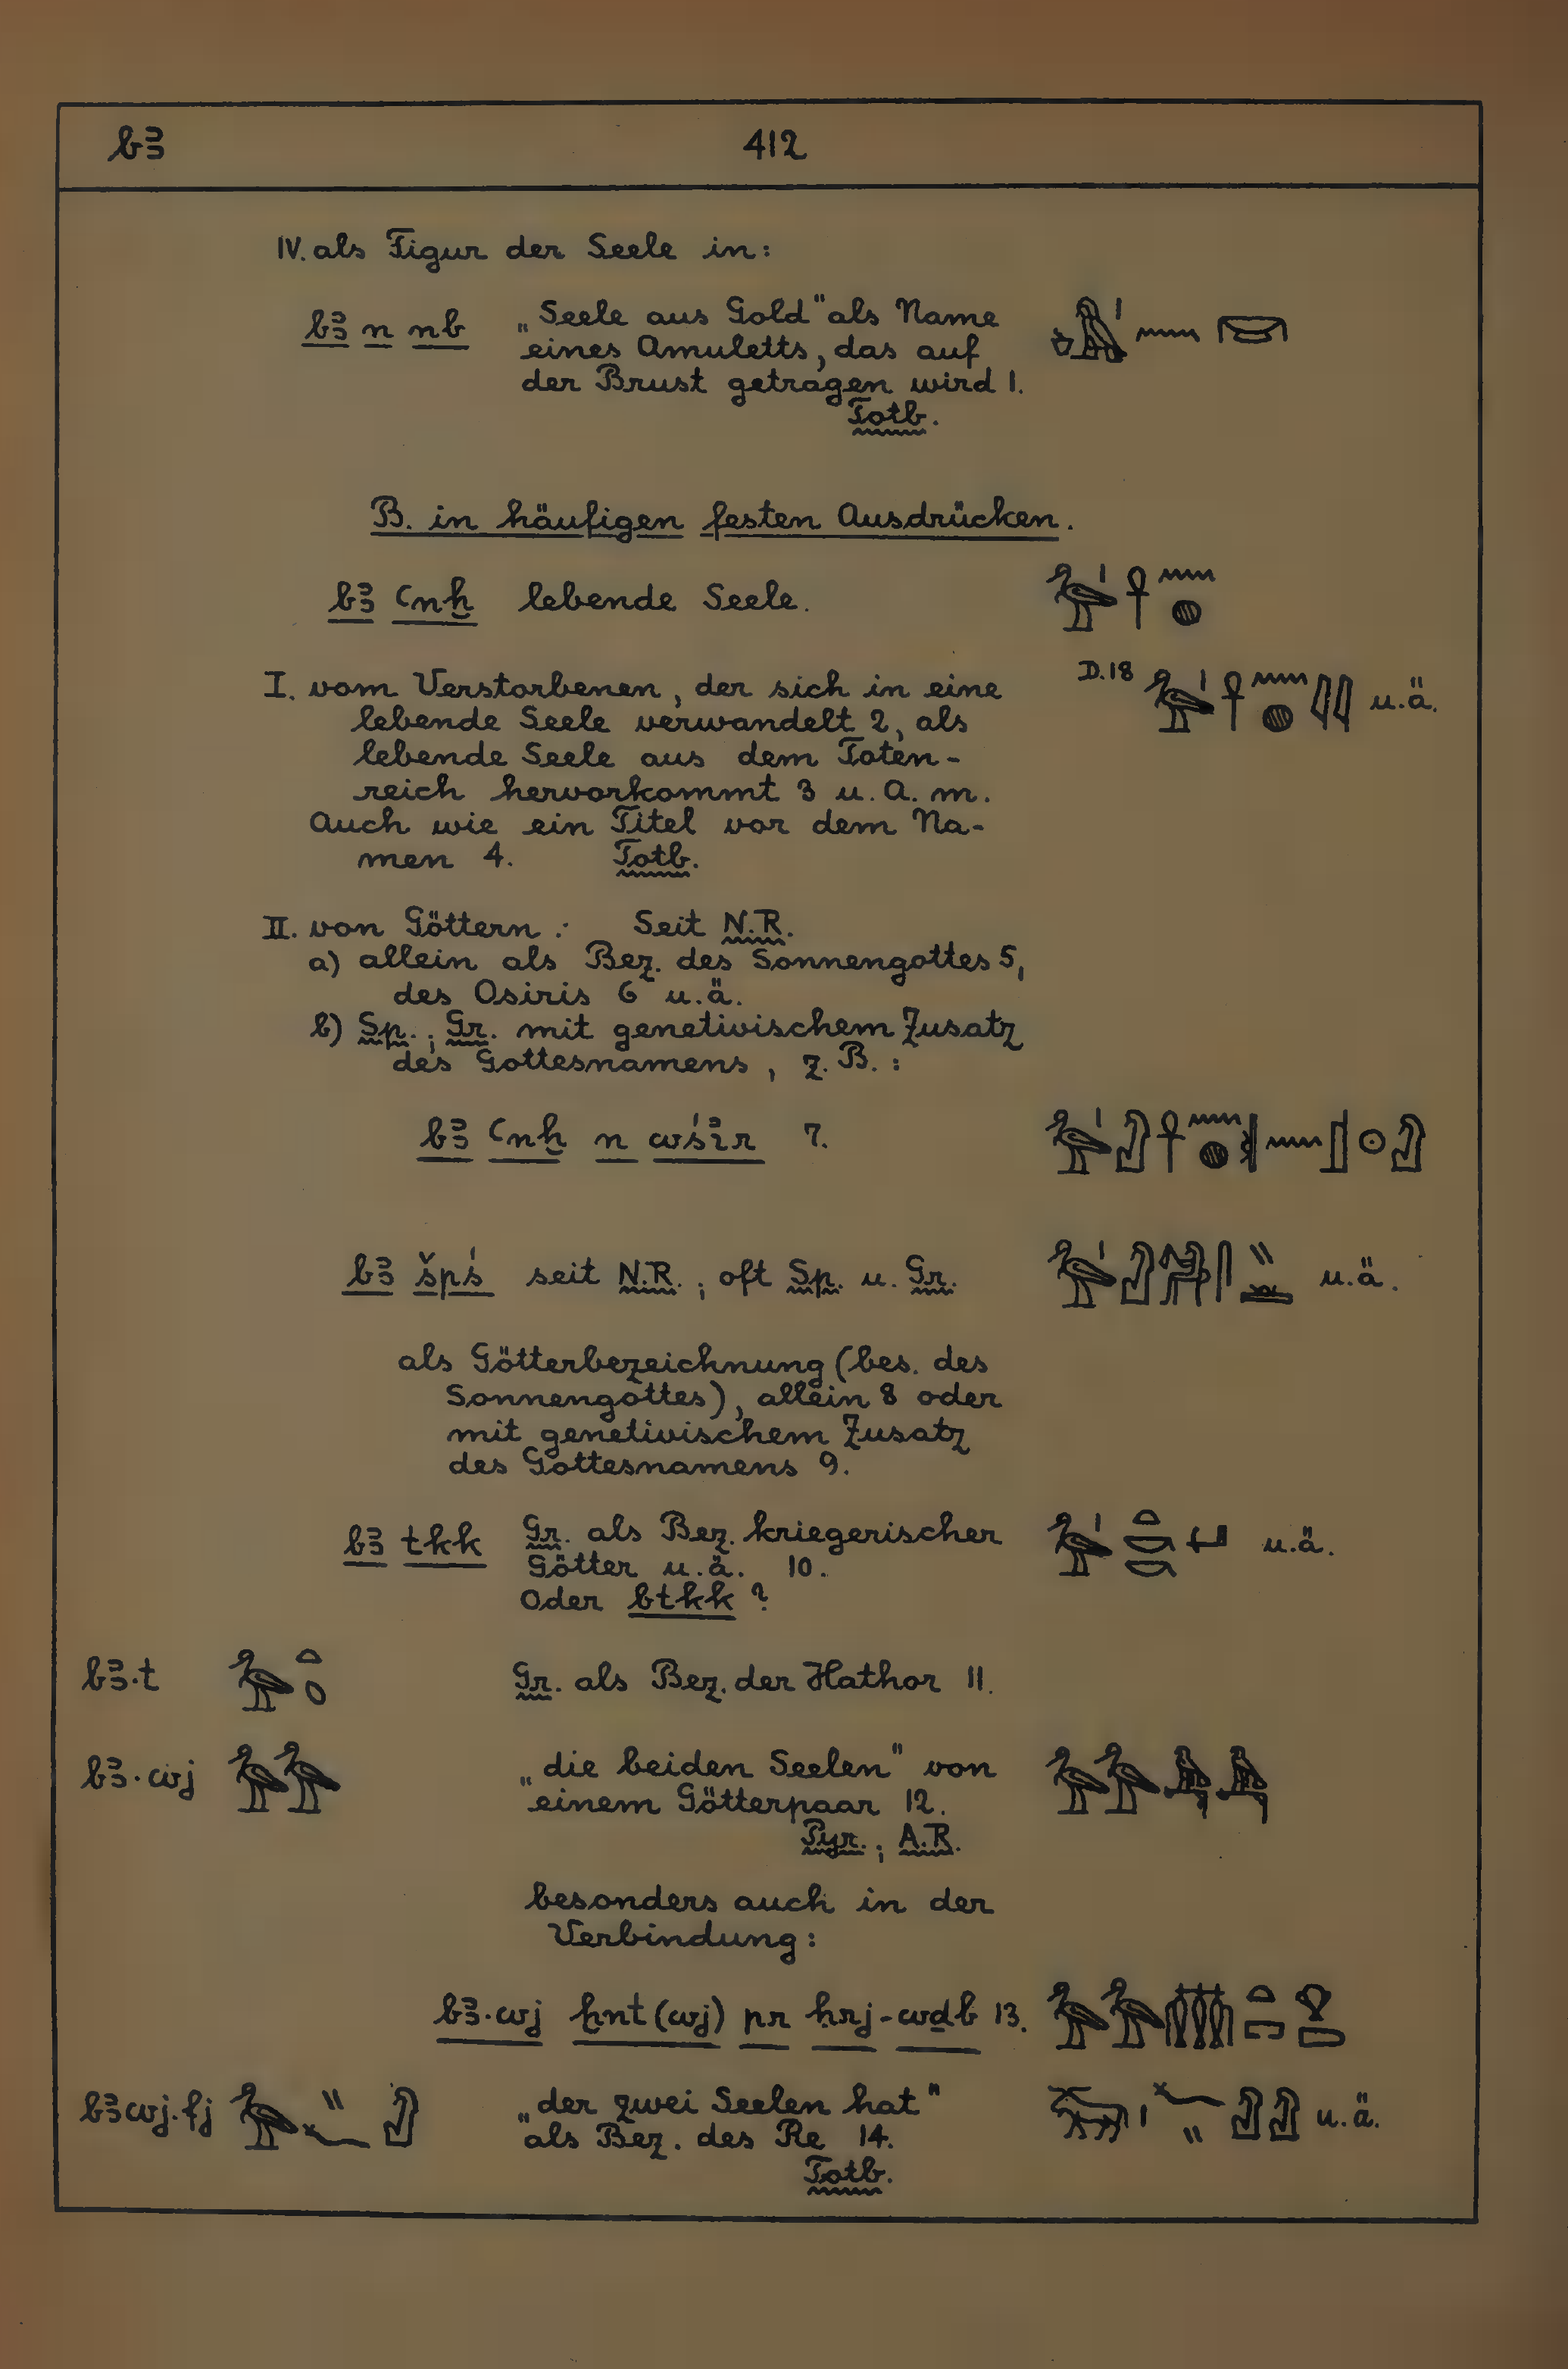 bꜣ 412
IV. als Figur der Seele in:
bꜣ n nb „Seele aus Gold" als Name
eines Amuletts, das auf
der Brust getragen wird 1.
Totb.
B. in häufigen festen Ausdrücken.
bꜣ ꜥnḫ lebende Seele.
I. vom Verstorbenen, der sich in eine
lebende Seele verwandelt 2, als
lebende Seele aus dem Toten-
reich hervorkommt 3 u. a. m.
Auch wie ein Titel vor dem Na-
men 4. Totb.
D.18 u.ä.
II. von Göttern: Seit N.R.
a) allein als Bez. des Sonnengottes 5,
des Osiris 6 u.ä.
b) Sp.; Gr. mit genetivischem Zusatz
des Gottesnamens, z.B.:
bꜣ ꜥnḫ n wśỉr 7.
bꜣ špś seit N.R.; oft Sp. u. Gr. u.ä.
als Götterbezeichnung (bes. des
Sonnengottes), allein 8 oder
mit genetivischem Zusatz
des Gottesnamens 9.
bꜣ tkk Gr. als Bez. kriegerischer u.ä.
Götter u.ä. 10.
Oder btkk?
bꜣ.t Gr. als Bez. der Hathor 11.
bꜣ.wj „die beiden Seelen" von
einem Götterpaar 12.
Pyr.; A.R.
besonders auch in der
Verbindung:
bꜣ.wj ḫnt(wj) pr ḥrj-wḏb 13.
bꜣwj.fj „der zwei Seelen hat" u.ä.
als Bez. des Re 14.
Totb.